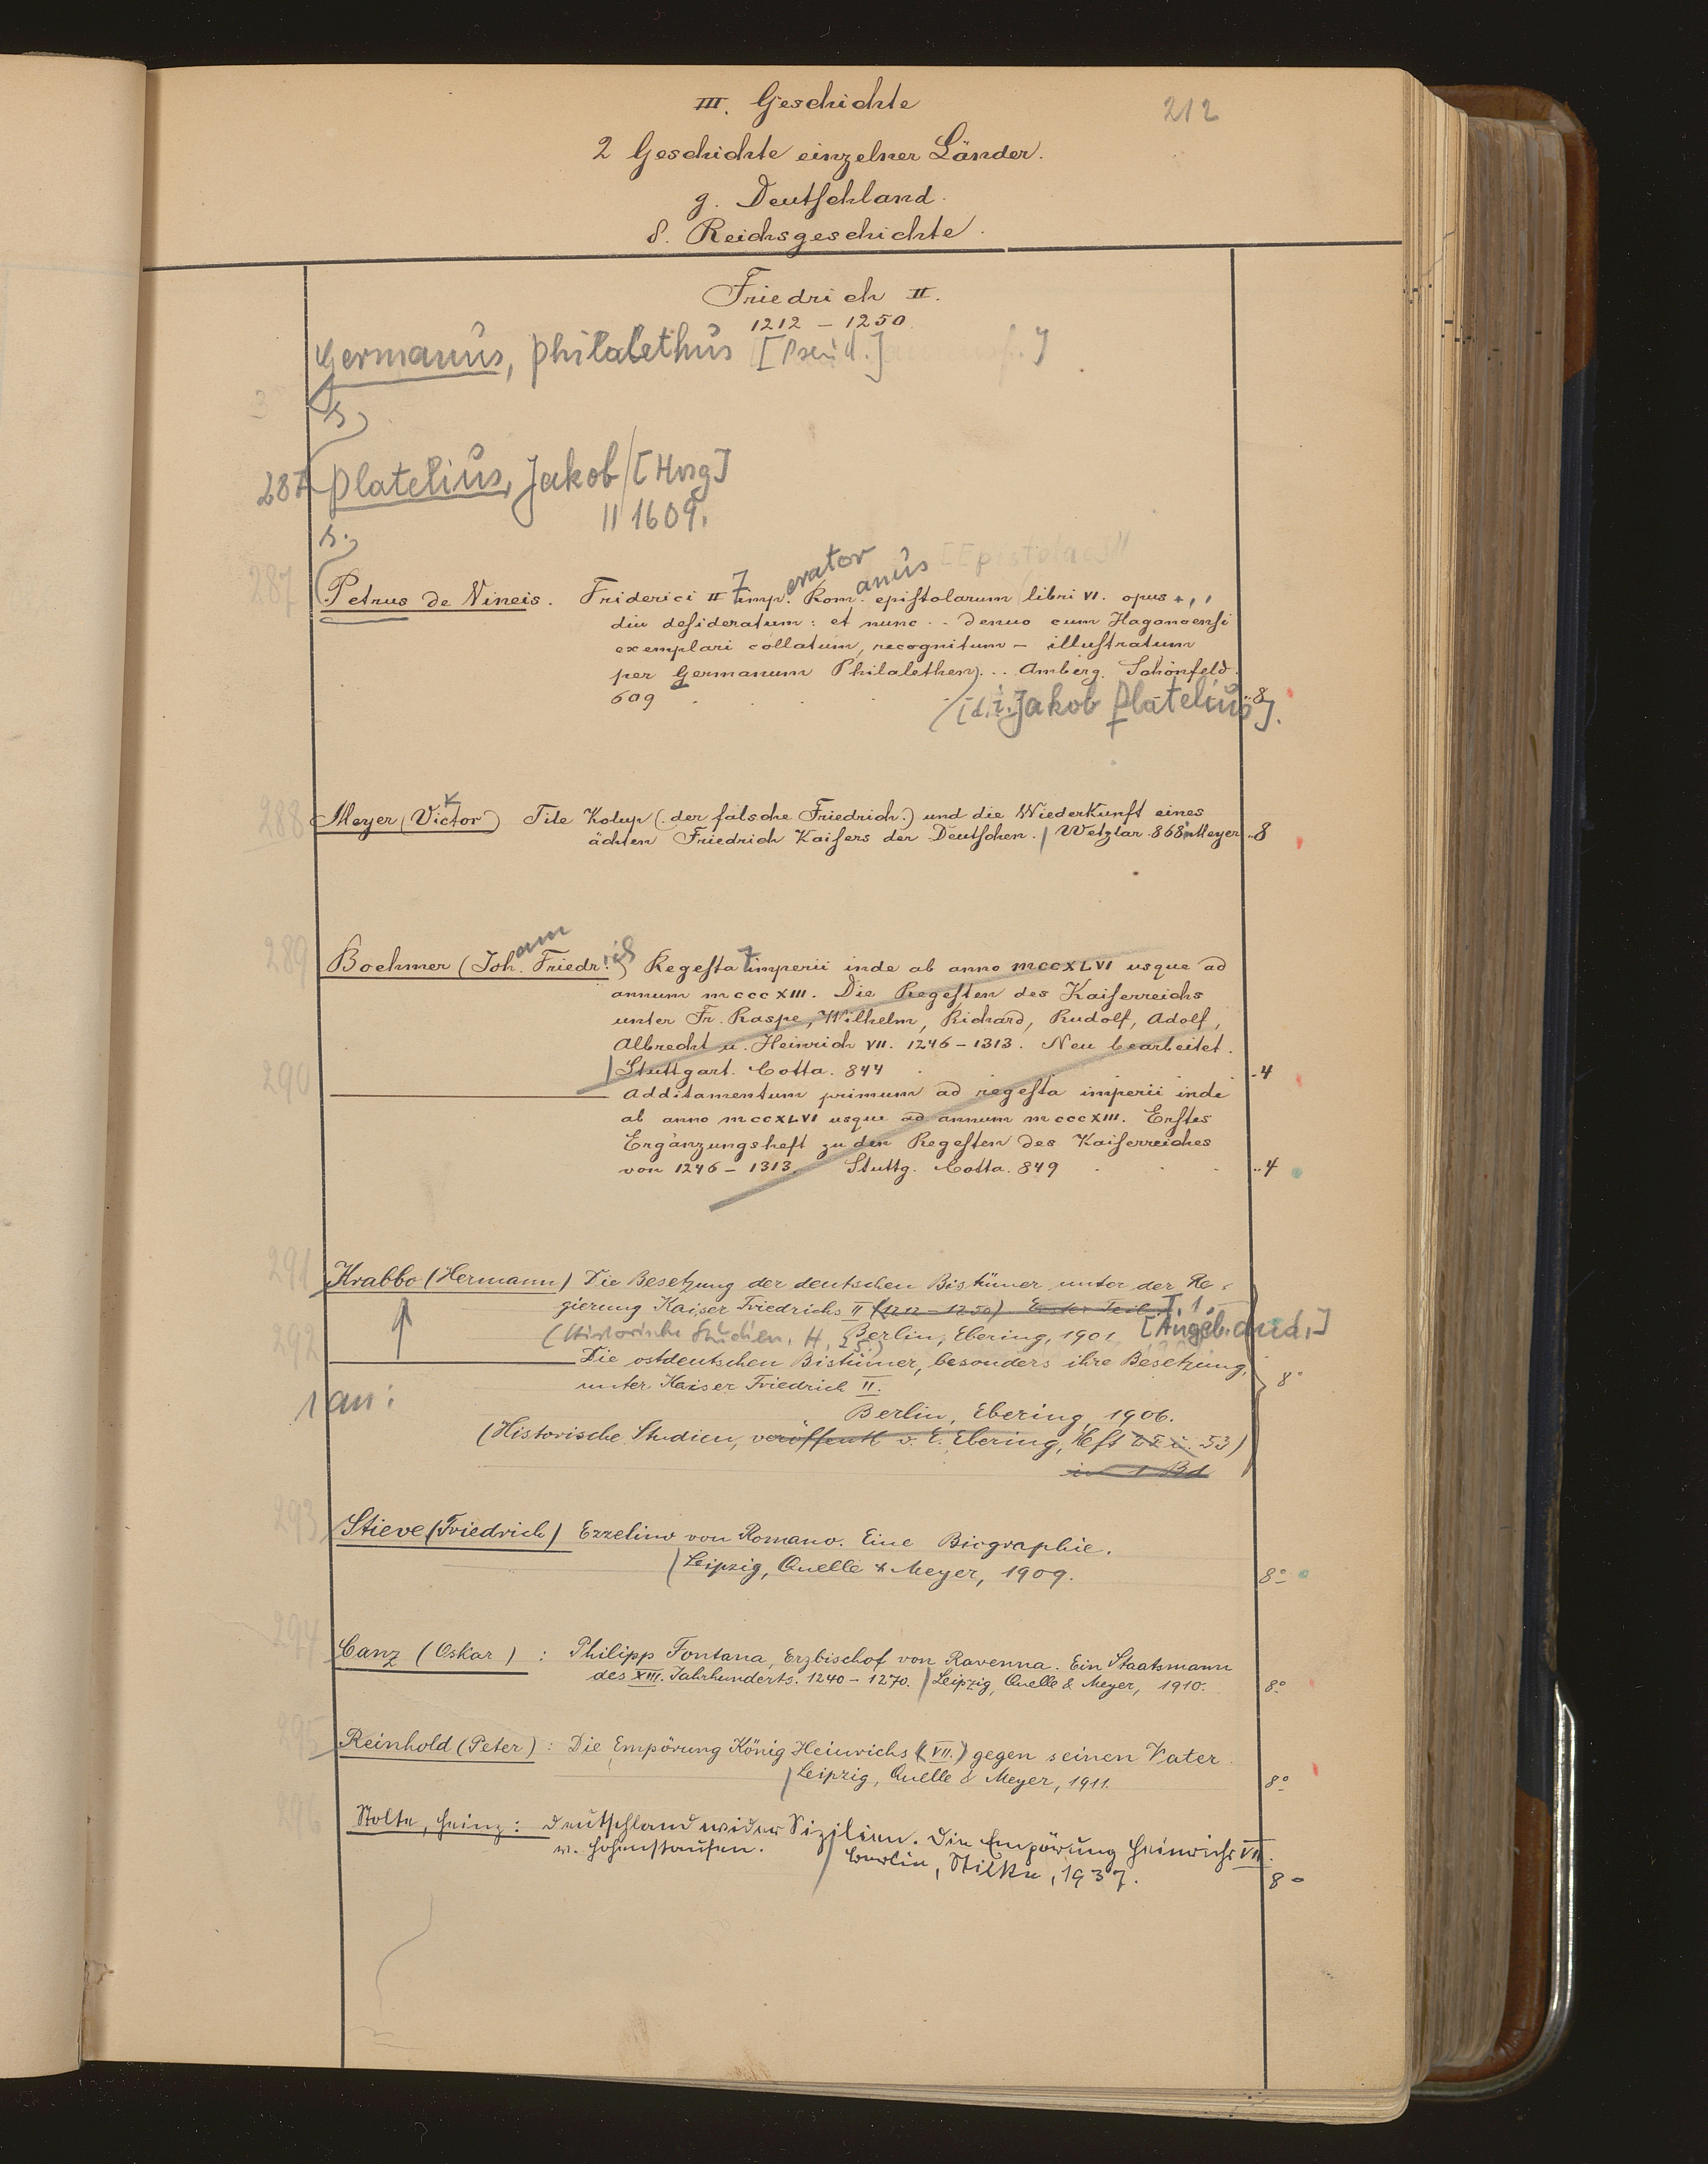 III. Geschichte
212
2 Geschichte einzelner Länder.
g. Deutschland.
δ. Reichsgeschichte.
Friedrich II.
1212 – 1250.
Germanus, Philalethus [Pseud.]
s.
287 Platelius, Jakob / [Hrsg]
|| 1609.
s.
[Epistolae] ||
erator anus
287 Petrus de Vineis. Friderici II imp. Rom. epistolarum libri VI. opus
diu desideratum: et nunc .. denuo cum Haganoensi
exemplari collatum, recognitum – illustratum
per Germanum Philalethen) .. Amberg. Schönfeld.
609 .. 8
[d. i. Jakob Platelius].
288 Meyer (Victor) Tile Kolup (der falsche Friedrich.) und die Wiederkunft eines
k
ächten Friedrich Kaisers der Deutschen. / Wetzlar. 868. Meyer .. 8
ann ich
289 Boehmer (Joh. Friedr.) Regesta imperii inde ab anno MCCXLVI usque ad
annum MCCCXIII. Die Regesten des Kaiserreichs
unter Fr. Raspe, Wilhelm, Richard, Rudolf, Adolf,
Albrecht u. Heinrich VII. 1246 – 1313. Neu bearbeitet.
/ Stuttgart. Cotta. 844 .. 4
290 Additamentum primum ad regesta imperii inde
ab anno MCCXLVI usque ad annum MCCCXIII. Erstes
Ergänzungsheft zu den Regesten des Kaiserreiches
von 1246 – 1313. Stuttg. Cotta. 849 .. 4
291 Krabbo (Hermann) Die Besetzung der deutschen Bistümer unter der Re-
gierung Kaiser Friedrichs II (1212 – 1250) Erster Teil. T. 1.
(Historische Studien, H. 25.) Berlin, Ebering, 1901 [Angeb. and.]
292 Die ostdeutschen Bistümer, besonders ihre Besetzung,
unter Kaiser Friedrich II. 8°
1 an:
Berlin, Ebering, 1906.
(Historische Studien, veröffentl v. E. Ebering, Heft 53)
in 1 Bd
293 Stieve (Friedrich) Ezzelino von Romano. Eine Biographie.
/ Leipzig, Quelle & Meyer, 1909. 8°
294 Canz (Oskar) : Philipp Fontana, Erzbischof von Ravenna. Ein Staatsmann
des XIII. Jahrhunderts. 1240 – 1270. / Leipzig, Quelle & Meyer, 1910. 8°
295 Reinhold (Peter) : Die Empörung König Heinrichs (VII.) gegen seinen Vater.
/ Leipzig, Quelle & Meyer, 1911. 8°
296 Stolte, Heinz: Deutschland wider Sizilien. Die Empörung Heinrichs VII.
v. Hohenstaufen. / Berlin, Stilke, 1937. 8°